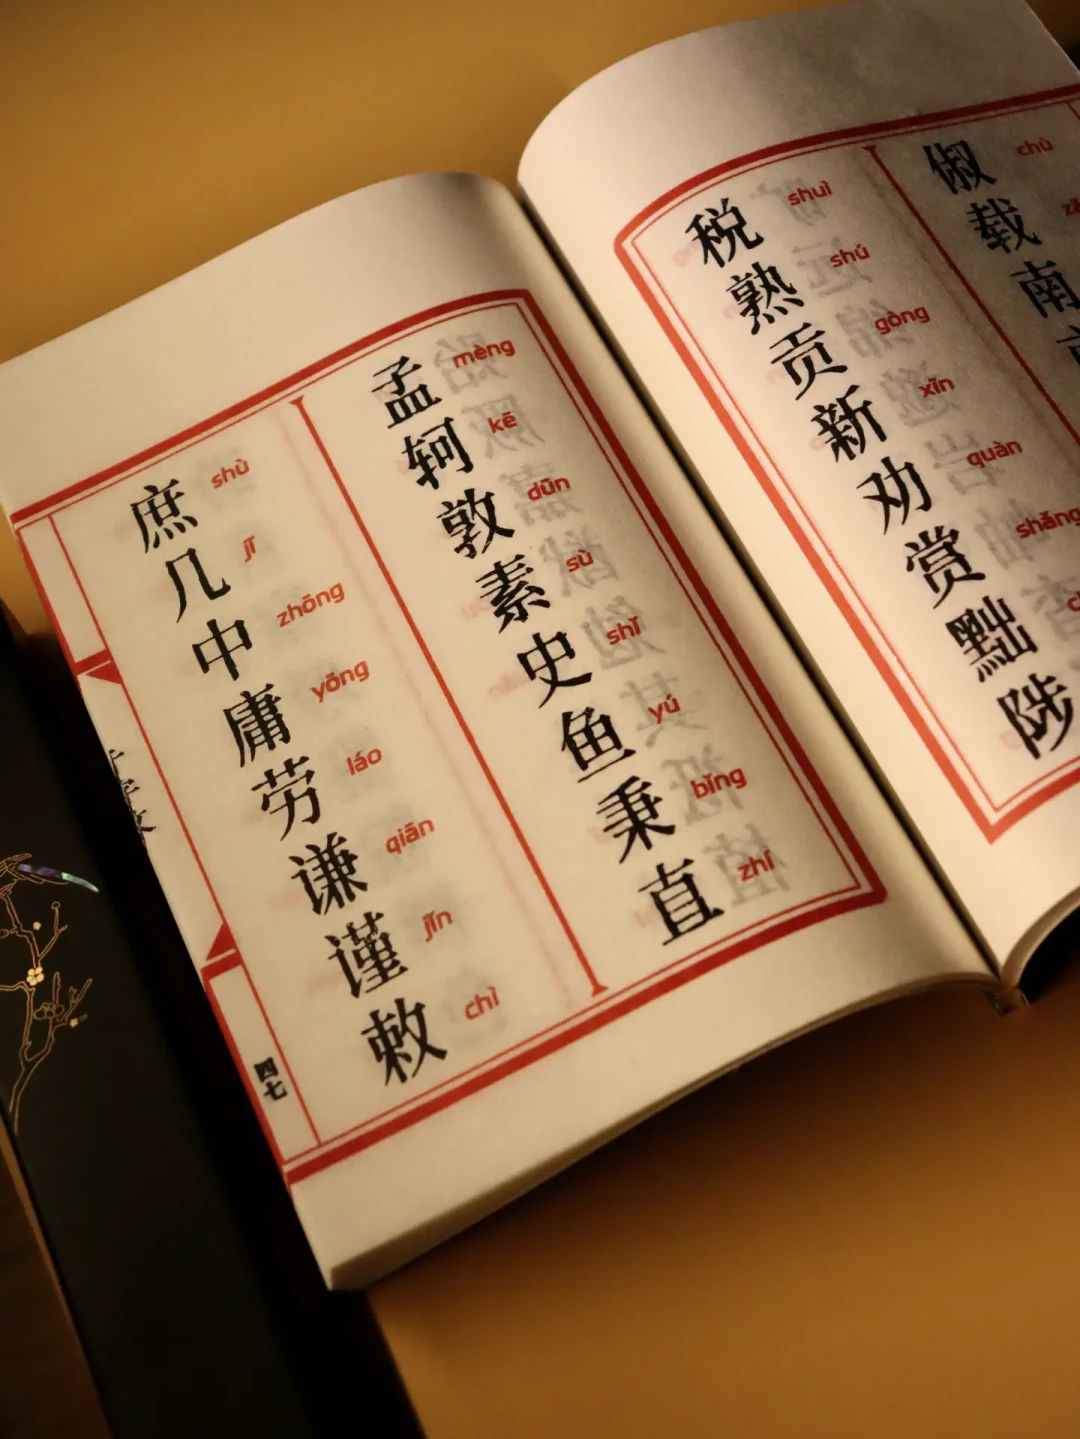 俶载南
chù
税熟贡新劝赏黜陟
shuì shú gòng xīn quàn shǎng
孟轲敦素史鱼秉直
mèng kē dūn sù shǐ yú bǐng zhí
庶几中庸劳谦谨敕
shù jī zhōng yōng láo qiān jǐn chì
四七